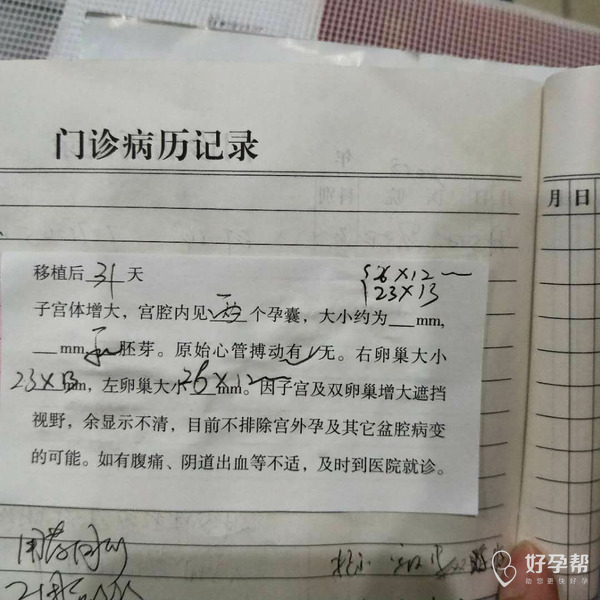 门诊病历记录
月 日
移植后 31 天
26×12
23×13
子宫体增大，宫腔内见 两 个孕囊，大小约为 mm，
mm 胚芽。原始心管搏动有√无。右卵巢大小
23×13mm，左卵巢大小 26×12 mm。因子宫及双卵巢增大遮挡
视野，余显示不清，目前不排除宫外孕及其它盆腔病变
的可能。如有腹痛、阴道出血等不适，及时到医院就诊。
用药同前
好孕帮
助您更快好孕